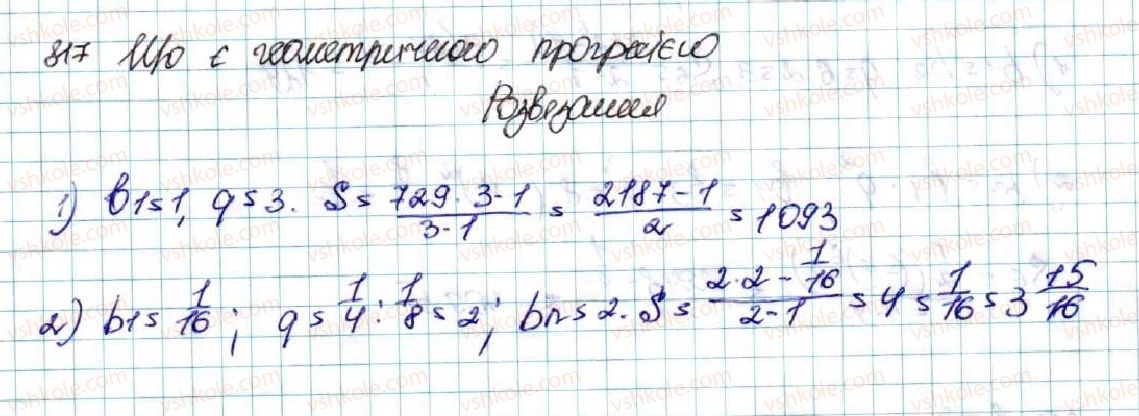 817 Що є геометричною прогресією
Розвязання
1) b1 = 1, q = 3. S = (729 · 3 - 1)/(3 - 1) = (2187 - 1)/2 = 1093
2) b1 = 1/16 ; q = 1/4 : 1/8 = 2 ; bn = 2. S = (2·2 - 1/16)/(2 - 1) = 4 = 1/16 = 3 15/16